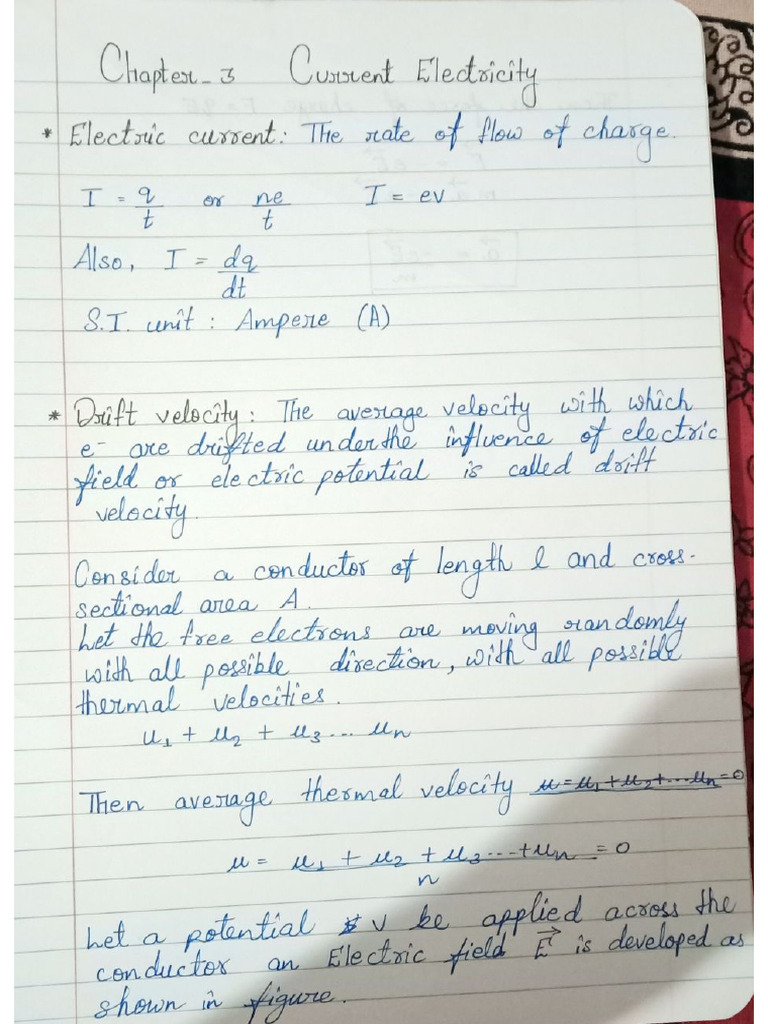 Chapter-3 Current Electricity
* Electric current: The rate of flow of charge.
I = q/t or ne/t I = ev
Also, I = dq/dt
S.I. unit : Ampere (A)
* Drift velocity: The average velocity with which
e⁻ are drifted under the influence of electric
field or electric potential is called drift
velocity.
Consider a conductor of length l and cross-
sectional area A.
Let the free electrons are moving randomly
with all possible direction, with all possible
thermal velocities.
u₁ + u₂ + u₃ ... uₙ
Then average thermal velocity u = u₁ + u₂ + ... uₙ = 0
u = u₁ + u₂ + u₃ ... + uₙ / n = 0
Let a potential V be applied across the
conductor an Electric field E⃗ is developed as
shown in figure.